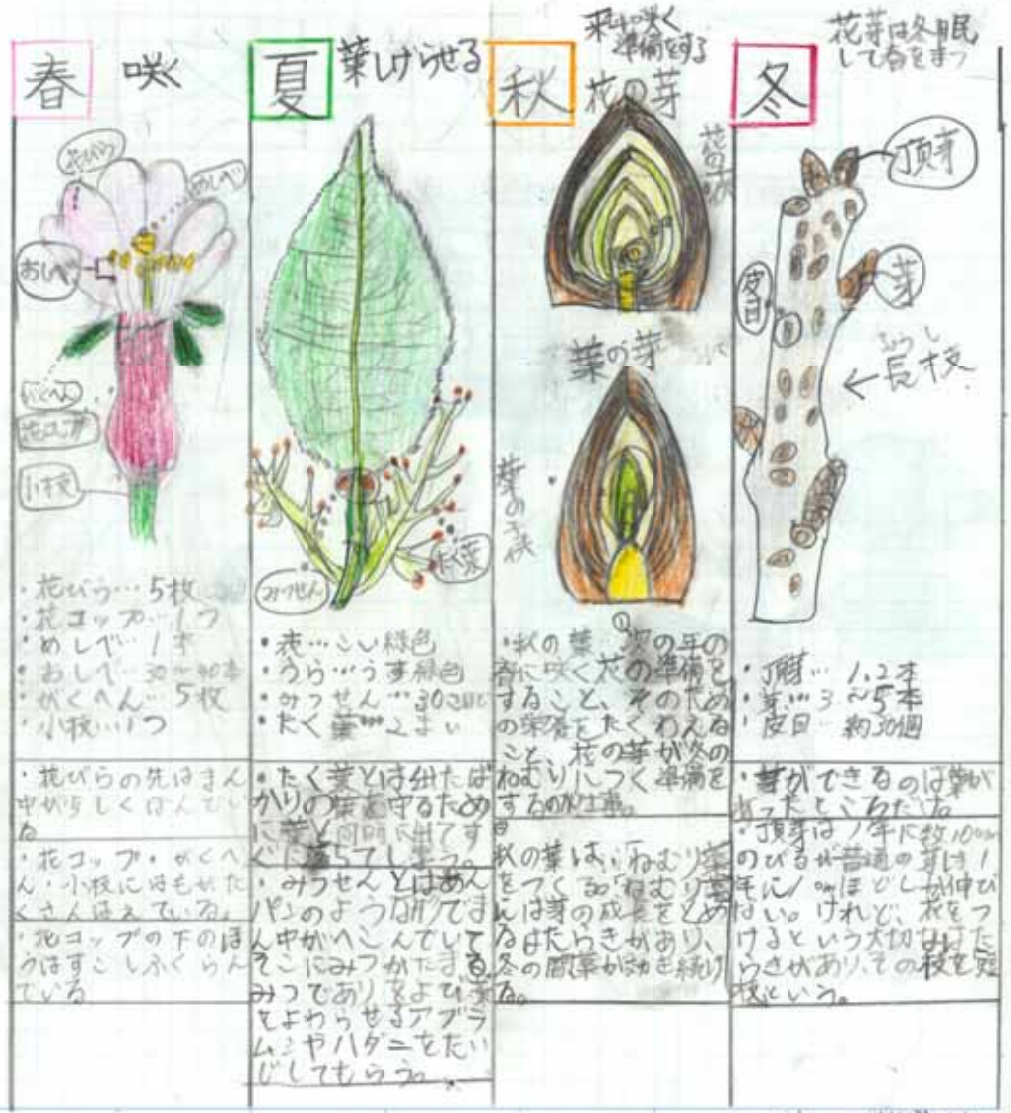 春 咲く
花びら
めしべ
おしべ
がくへん
小枝
・花びら…5枚
・花コップ…1つ
・めしべ…1本
・おしべ…30〜40本
・がくへん…5枚
・小枝…1つ
・花びらの先はまん
中が
る
・花コップ・がくへ
ん・小枝には毛がた
くさんはえている。
・花コップの下のほ
うはすこしふくらん
でいる
夏 葉しげらせる
みつせん
たく葉
・表…こい緑色
・うら…うす緑色
・みつせん…
・たく葉…2まい
・たく葉とは出たば
かりの葉を守るため
に葉と同時に出てす
ぐに落ちてしまう。
・みつせんとはあん
パンのような形でま
ん中がへこんでいて
そこにみつがたまる
みつでありをよび
をよわらせるアブラ
ムシやハダニをたい
じしてもらう。
秋 来年咲く
準備をする
花の芽
葉の芽
葉の子供
・秋の葉…①次の年の
春に咲く花の準備を
すること、そのため
の栄養をたくわえる
こと、花の芽が冬の
ねむりにつく準備を
するのが仕事。
秋の葉は、「ねむり薬」
をつくる。「ねむり薬」
には芽の成長をとめ
るはたらきがあり、
冬の間中が効き続け
る。
冬 花芽は冬眠
して春をまつ
頂芽
芽
皮目
←長枝
・頂芽…1、2本
・芽…3〜5本
・皮目…約30個
・芽ができるのは葉が
あったところだけ。
・頂芽は1年に数10cm
のびるが普通の芽は1
年に1cmほどしか伸び
ない。けれど、花をつ
けるという大切なはた
らきがあり、その枝を短
枝という。